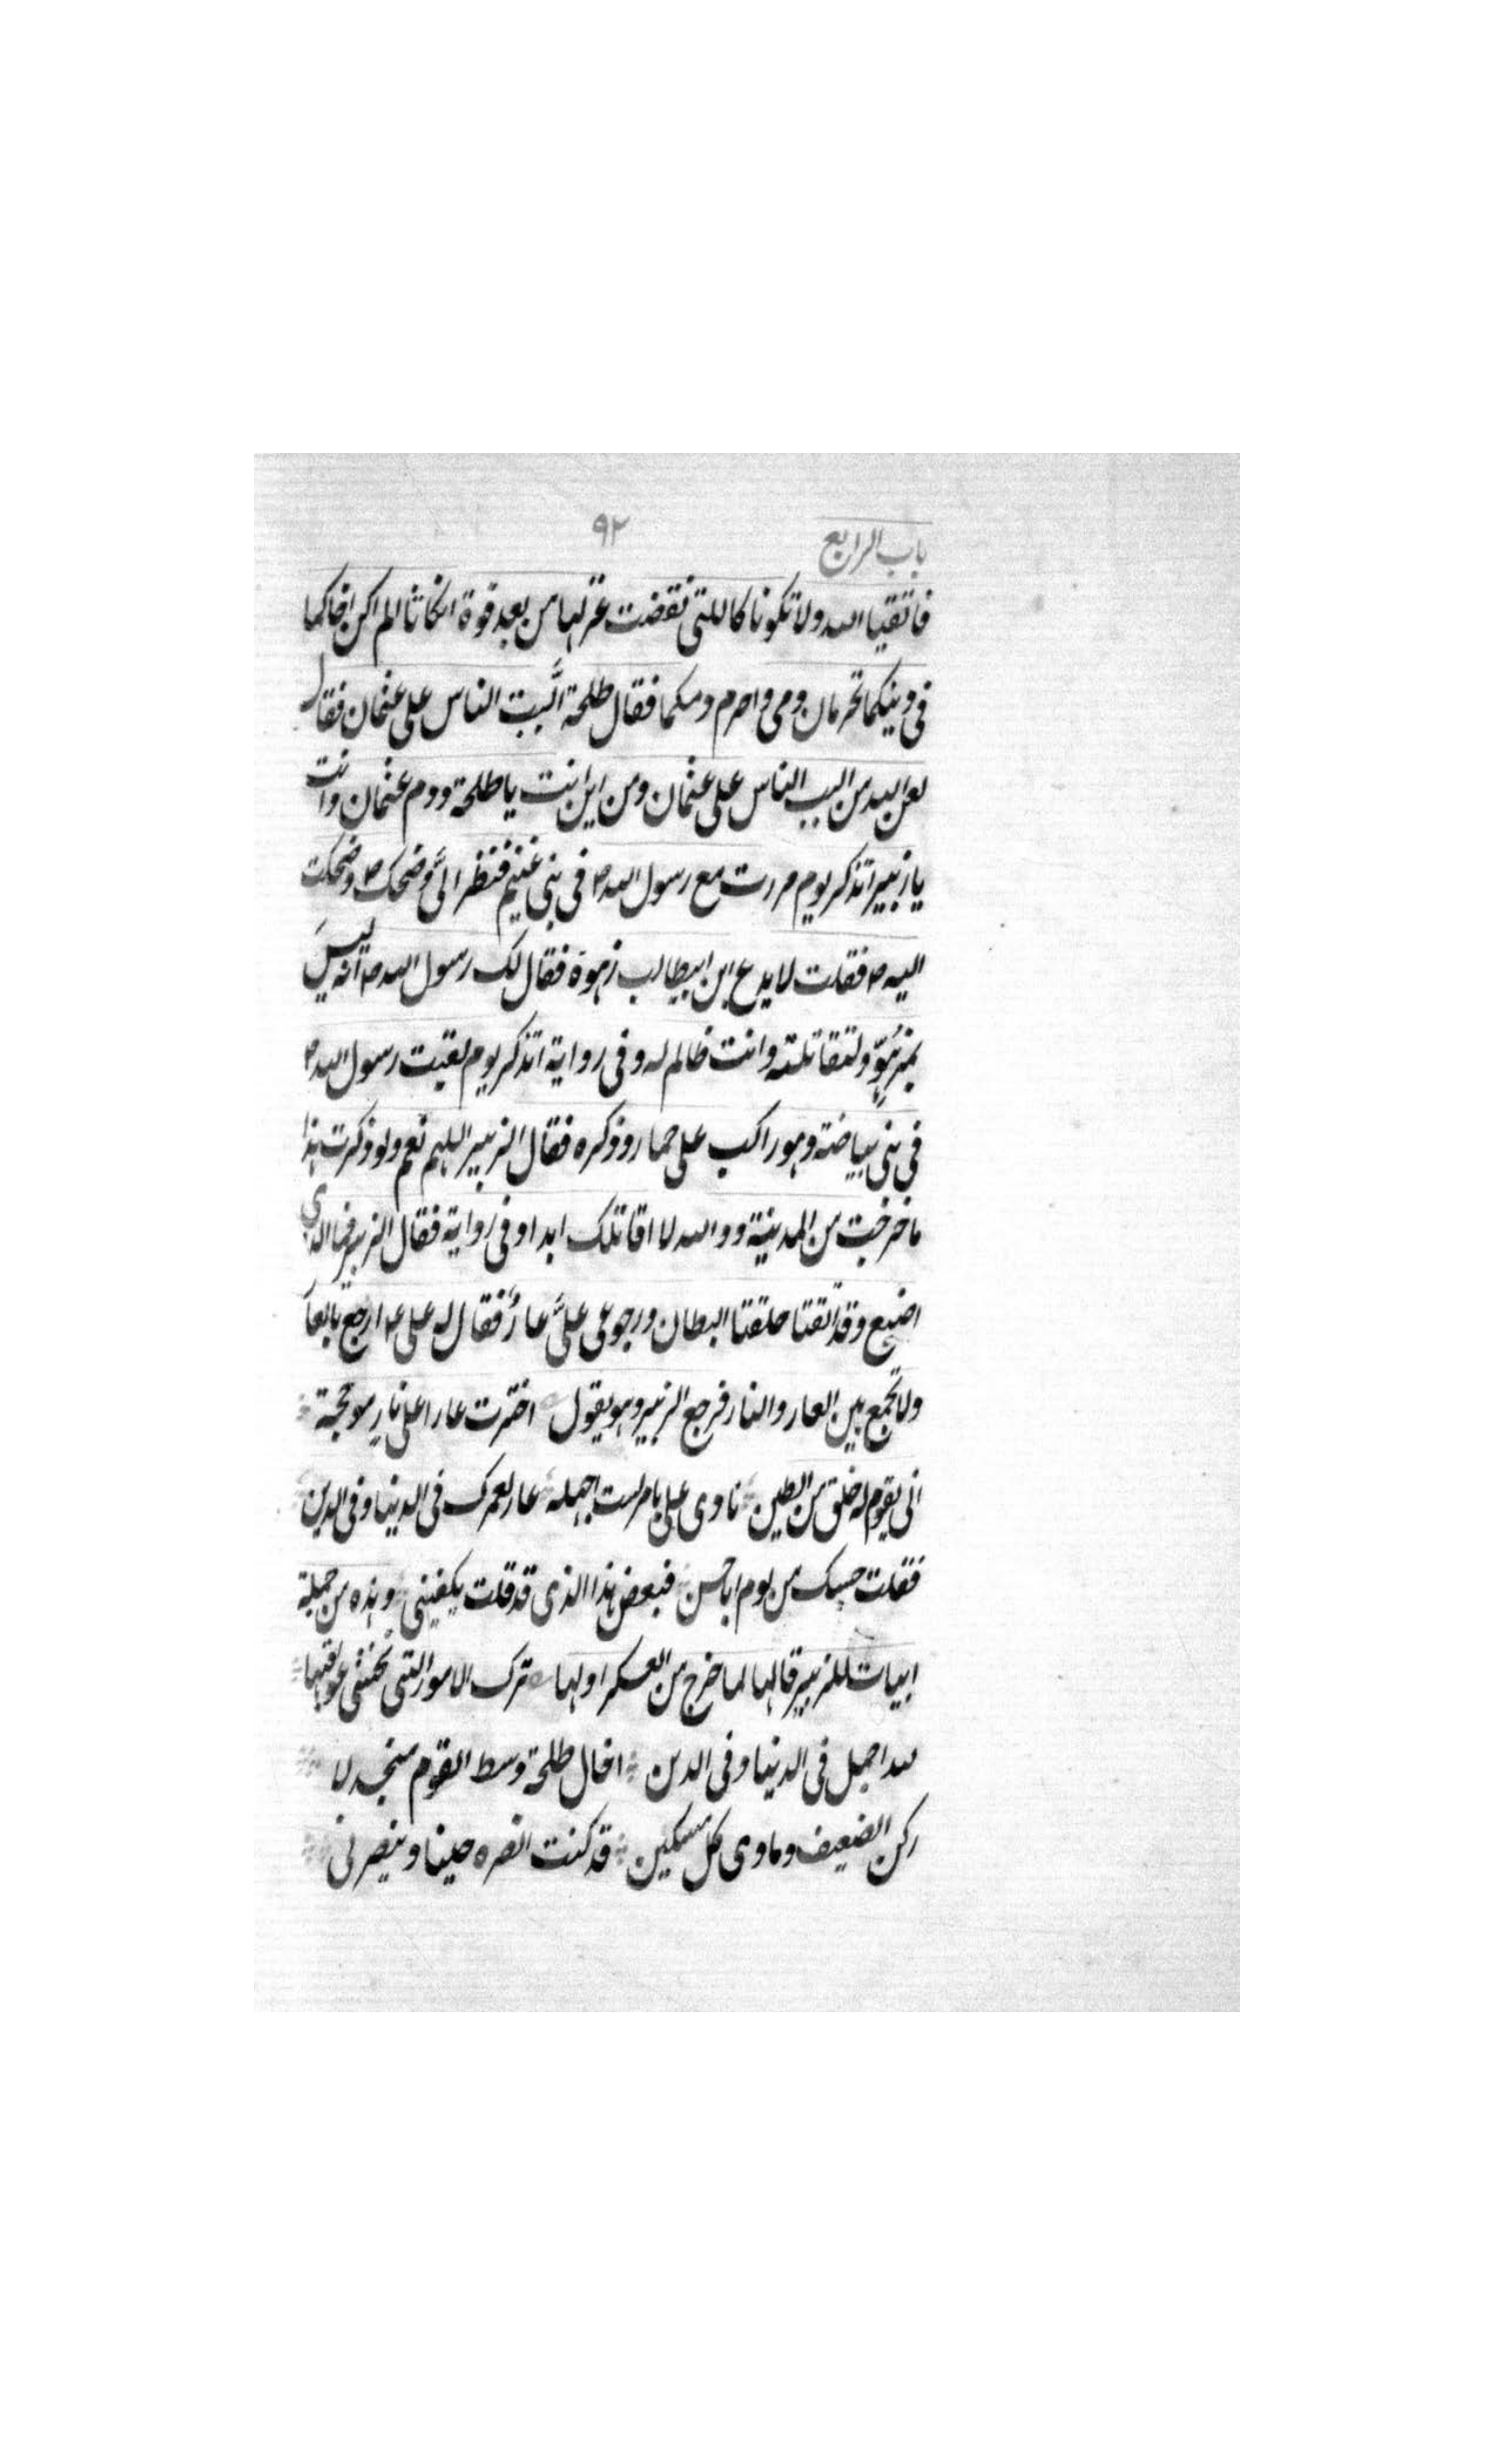 باب الرابع ٩٢
فاتقيا الله ولا تكونا كاللتى نقضت غزلها من بعد قوة انكاثا الم اكن اخاكما
فى دينكما تحرمان دمى واحرم دمكما فقال طلحة البّت الناس على عثمان فقال
لعن الله من الب الناس على عثمان ومن اين انت يا طلحة ودم عثمان وانت
يا زبير اتذكر يوم مررت مع رسول الله ص فى بنى غنيم فنظر الىَّ وضحك ص وضحكت
اليه ص فقلت لا يدع ابن ابيطالب زهوة فقال لك رسول الله ص انه ليسَ
بمزهُوٍّ ولتقاتلنه وانت ظالم له وفى رواية اتذكر يوم لقيت رسول الله ص
فى بنى بياضة وهو راكب على حمار وذكره فقال الزبير اللهم نعم ولو ذكرت هذا
ما خرجت من المدينة ووالله لا اقاتلك ابدا وفى رواية فقال الزبير فما الذي
اصنع وقد التقتا حلقتا البطان ورجوعى علىَّ عارٌ فقال له على ع ارجع بالعار
ولا تجمع بين العار والنار فرجع الزبير وهو يقول اخترت عارا على نارٍ موججة
انى يقوم له خلق من الطين نادى على بامر لست اجهله عار لعمرك فى الدنيا وفى الدين
فقلت حسبك من لوم اباحسن فبعض هذا الذى قد قلت يكفينى وهذه من جملة
ابيات للزبير قالها لما خرج من العسكر اولها ترك الامور التى تخشى عواقبها
لله اجمل فى الدنيا وفى الدين اخال طلحة وسط القوم منجدلا
ركن الضعيف وماوى كل مسكين قد كنت انصره حينا وينصرنى